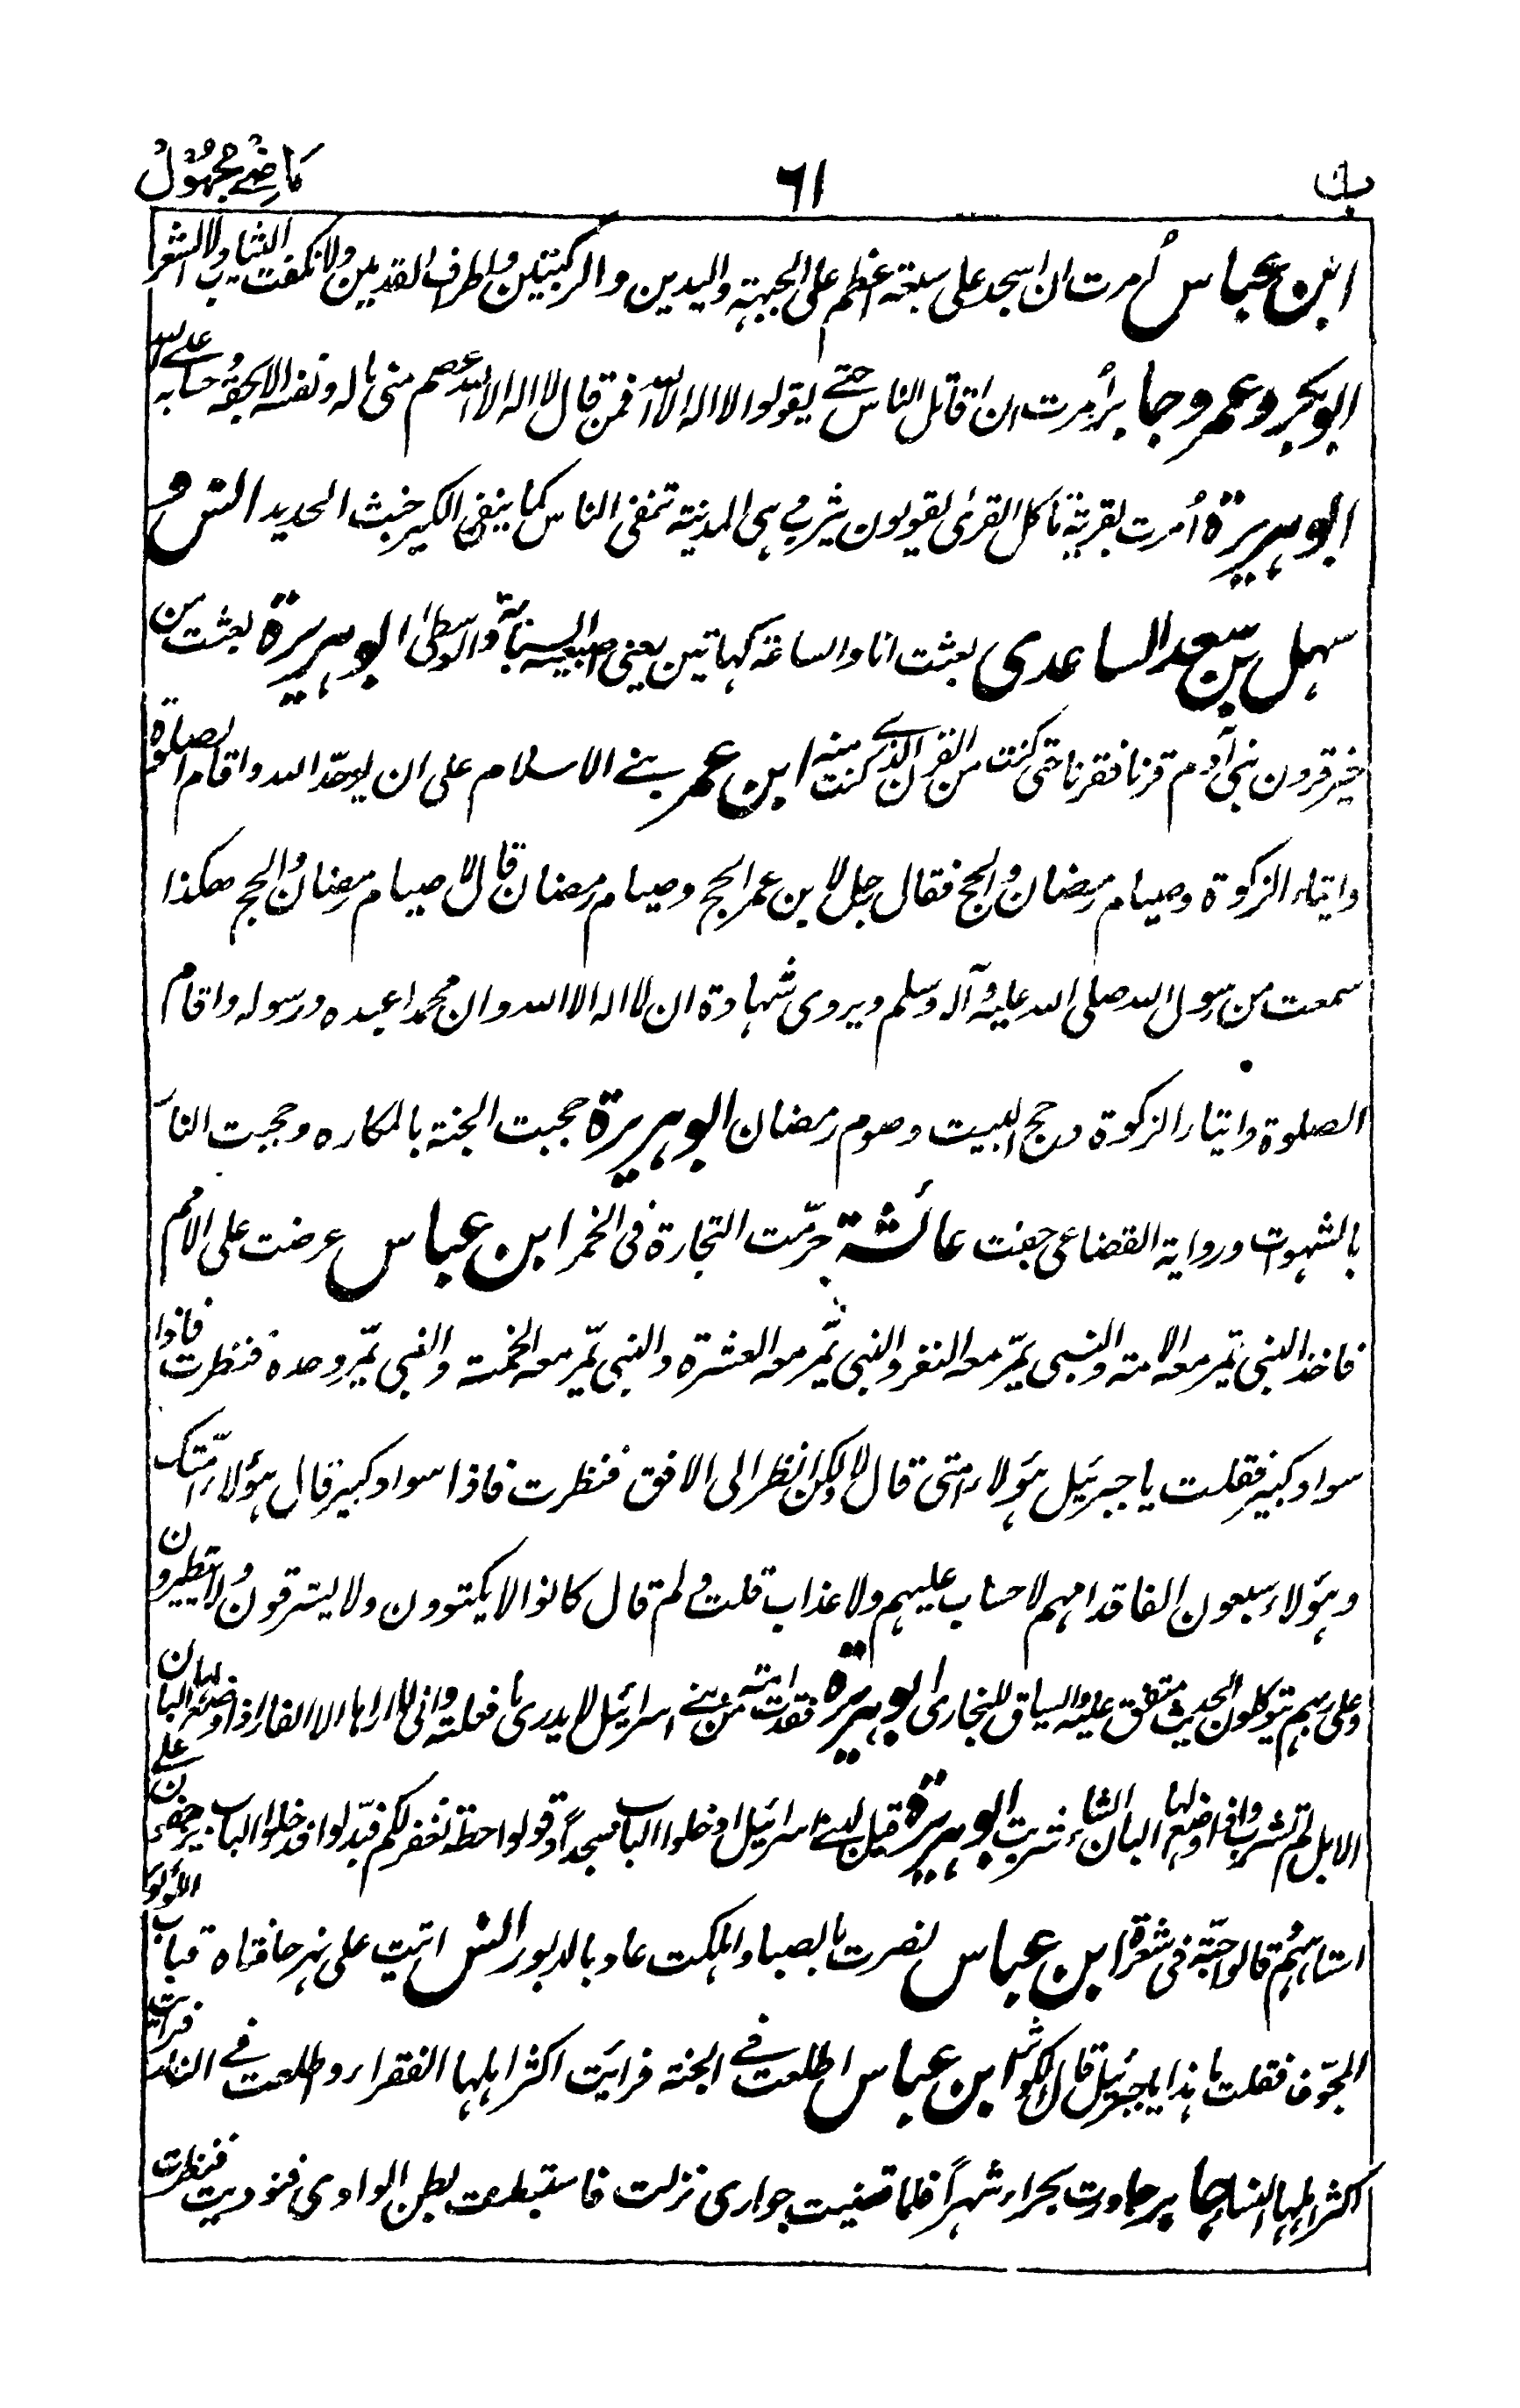 ب ٦١ ماضی مجہول
ابن عباس اُمرت ان اسجد علی سبعۃ اعظم علی الجبہۃ والیدین والرکبتین واطراف القدمین ولا نکفت الثیاب ولا الشعر
ابو بکر و عمر و جابر اُمرت ان اقاتل الناس حتے یقولوا لا الہ الا اللہ فمن قال لا الہ الا اللہ عصم منی مالہ ونفسہ الا بحقہ وحسابہ علے اللہ
ابو ہریرۃ اُمرت بقریۃ تأکل القریٰ یقولون یثرب وہی المدینۃ تنفی الناس کما ینفی الکیر خبث الحدید انس و
سہل بن سعد الساعدی بعثت انا والساعۃ کہاتین یعنی اصبعیہ السبابۃ والوسطیٰ ابو ہریرۃ بعثت من
خیر قرون بنی آدم قرنا فقرنا حتی کنت من القرن الذے کنت منہ ابن عمر بنے الاسلام علی ان یوحّد اللہ واقام الصلوۃ
وایتاء الزکوۃ وصیام رمضان والحج فقال رجل لابن عمر الحج وصیام رمضان قال لا صیام رمضان والحج ھکذا
سمعت من رسول اللہ صلی اللہ علیہ وآلہ وسلم ویروی شہادۃ ان لا الہ الا اللہ وان محمدا عبدہ ورسولہ واقام
الصلوۃ وایتاء الزکوۃ وحج البیت وصوم رمضان ابو ہریرۃ حجبت الجنۃ بالمکارہ وحجبت النار
بالشہوات وروایۃ القضاعی حفت عائشۃ حرّمت التجارۃ فی الخمر ابن عباس عرضت علی الامم
فاخذ النبی یمر معہ الامۃ والنبی یمّر معہ النفر والنبی یمّر معہ العشرۃ والنبی یمّر معہ الخمسۃ والنبی یمّر وحدہ فنظرت فاذا
سواد کبیر فقلت یا جبرئیل ہؤلاء امتی قال لا ولکن انظر الی الافق فنظرت فاذا سواد کبیر قال ہؤلاء امّتک
وہؤلاء سبعون الفا قدامہم لا حساب علیہم ولا عذاب قلت ولم قال کانوا لا یکتوون ولا یسترقون ولا یتطیرون
وعلی ربہم یتوکلون الحدیث متفق علیہ والسیاق للبخاری ابو ہریرۃ فقدت امۃ من بنے اسرائیل لا یدری ما فعلت وانی لا اراہا الا الفار اذا وضع لہا البان
الابل لم تشرب واذا وضع لہا البان الشاء شربت ابو ہریرۃ قیل لبنے اسرائیل ادخلوا الباب سجداً وقولوا حطۃ نغفر لکم فبدّلوا فدخلوا الباب یزحفون علے
استاہہم وقالوا حبّۃ فی شعرۃ ابن عباس نصرت بالصبا واہلکت عاد بالدبور انس اتیت علی نہر حافتاہ قباب اللؤلؤ
المجوّف فقلت ما ہذا یا جبرئیل قال الکوثر ابن عباس اطلعت فے الجنۃ فرائیت اکثر اہلہا الفقراء واطلعت فے النار فرائیت
اکثر اہلہا النساء جابر جاورت بحراء شہراً فلما قضیت جواری نزلت فاستبطنت بطن الوادی فنودیت فنظرت